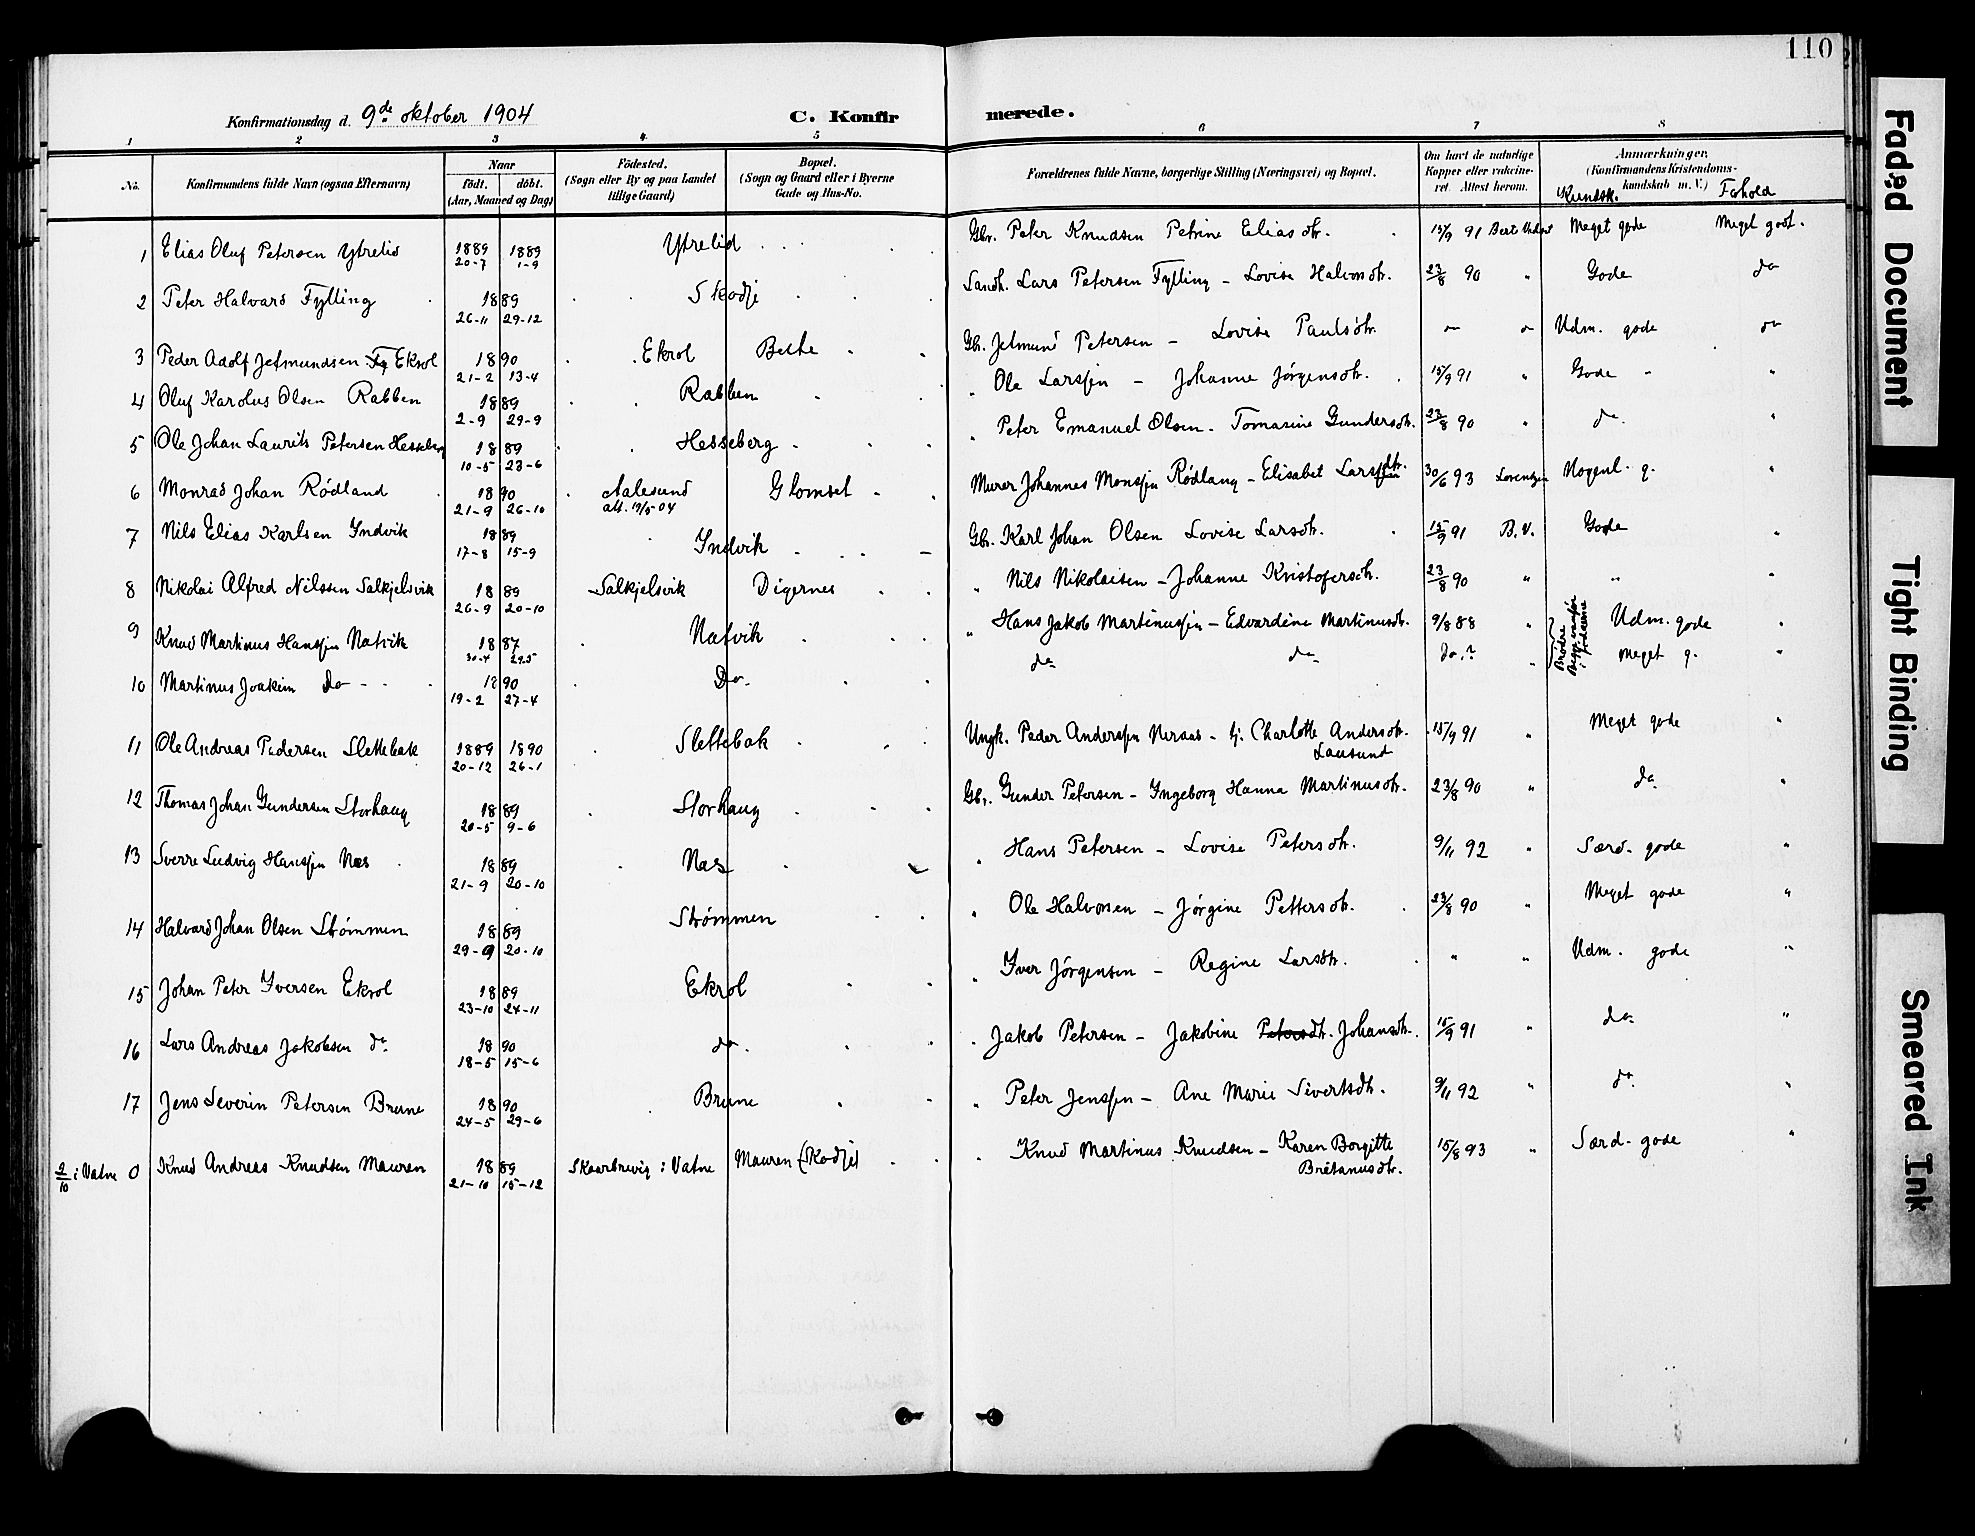 110
Konfirmationsdag d. 9de oktober 1904
C. Konfirmerede.
1 2 3 4 5 6 7 8
No.
Konfirmandens fulde Navn (ogsaa Efternavn)
Naar
födt. döbt.
(Aar, Maaned og Dag)
Födested.
(Sogn eller By og paa Landet
tillige Gaard)
Bopæl.
(Sogn og Gaard eller i Byerne
Gade og Hus-No.
Forældrenes fulde Navne, borgerlige Stilling (Næringsvei) og Bopæl.
Om havt de naturlige
Kopper eller vakcine-
ret. Attest herom.
Anmærkninger.
(Konfirmandens Kristendoms-
kundskab m. V.)
Kundsk. Forhold
1 Elias Oluf Petersen Ytrelid 1889 20-7 1889 1-9 Ytrelid Gbr. Peter Knudsen Petrine Eliasdtr. 15/9 91 Meget gode Meget godt.
2 Peter Halvard Fylling 1889 26-11 29-12 Skodje Sandh. Lars Petersen Fylling - Lovise Halvorsdtr. 23/8 90 " Gode do
3 Peder Adolf Jetmundsen Fy Ekrol 1890 21-2 13-4 Ekrol Gbr. Jetmund Petersen - Lovise Paulsdtr. Udm. gode do
4 Oluf Karolus Olsen Rabben 1889 2-9 29-9 Rabben " Ole Larssen - Johanne Jørgensdtr. 15/9 91 " Gode "
5 Ole Johan Laurits Petersen Hesseberg 1889 10-5 23-6 Hesseberg " Peter Emanuel Olsen - Tomasine Gundersdtr. 23/8 90 " do "
6 Monrad Johan Rødland 1890 21-9 26-10 Aalesund att. 19/5-04 Glomset Murer Johannes Monssen Rødland - Elisabet Larsdtr. 30/6 93 Lorentzen Nogenl. g. "
7 Nils Elias Karlsen Indvik 1889 17-8 15-9 Indvik Gbr. Karl Johan Olsen Lovise Larsdtr. 15/9 91 B.V. Gode "
8 Nikolai Alfred Nilssen Salkjelsvik 1889 26-9 20-10 Salkjelsvik Digernes " Nils Nikolaisen - Johanne Kristofersdtr. 23/8 90 " " "
9 Knud Martinus Hanssen Natvik 1887 30-4 29.5 Natvik " Hans Jakob Martinussen - Edvardine Martinusdtr. 9/8 88 " Brødre Udm. gode "
10 Martinus Joakim do 1890 19-2 27-4 Do. do do do.? " Meget g. "
11 Ole Andreas Pedersen Slettebak 1889 20-12 1890 26-1 Slettebak Ungk. Peder Anderssen Neraas - Pj. Charlotte Andersdtr. Lausund 15/9 91 " Meget gode "
12 Thomas Johan Gundersen Storhaug 1889 20-5 9-6 Storhaug Gbr. Gunder Petersen - Ingeborg Hanna Martinusdtr. 23/8 90 " do "
13 Sverre Ludvig Hanssen Næs 1889 21-9 20-10 Næs " Hans Petersen - Lovise Petersdtr. 9/11 92 " Særd. gode "
14 Halvard Johan Olsen Strømmen 1889 29-9 20-10 Strømmen " Ole Halvorsen - Jørgine Pettersdtr. 23/8 90 " Meget gode "
15 Johan Peter Iversen Ekrol 1889 23-10 24-11 Ekrol " Iver Jørgensen - Regine Larsdtr. " " Udm. gode "
16 Lars Andreas Jakobsen do. 1890 18-5 15-6 do. " Jakob Petersen - Jakobine Petersdtr. Johansdtr. 15/9 91 " do. "
17 Jens Severin Petersen Brune 1890 24-5 29-6 Brune " Peter Jenssen - Ane Marie Sivertsdtr. 9/11 92 " do. "
2/10 i Vatne 0 Knud Andreas Knudsen Mauren 1889 21-10 15-12 Skaarbrevig i Vatne Mauren (Skodje) " Knud Martinus Knudsen - Karen Borgitte Brétanusdtr. 15/8 93 " Særd. gode "
Faded Document
Tight Binding
Smeared Ink